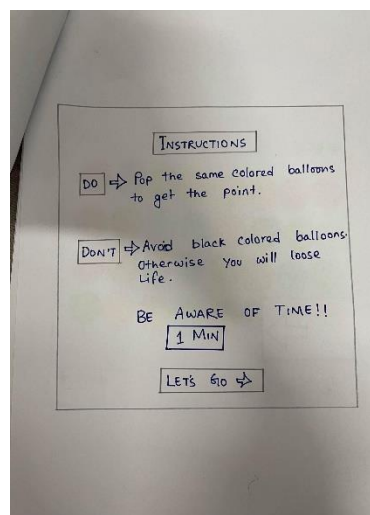 INSTRUCTIONS
DO ⇨ Pop the same colored balloons
to get the point.
DON'T ⇨ Avoid black colored balloons.
Otherwise You will loose
Life.
BE AWARE OF TIME!!
1 MIN
LET'S GO ⇨